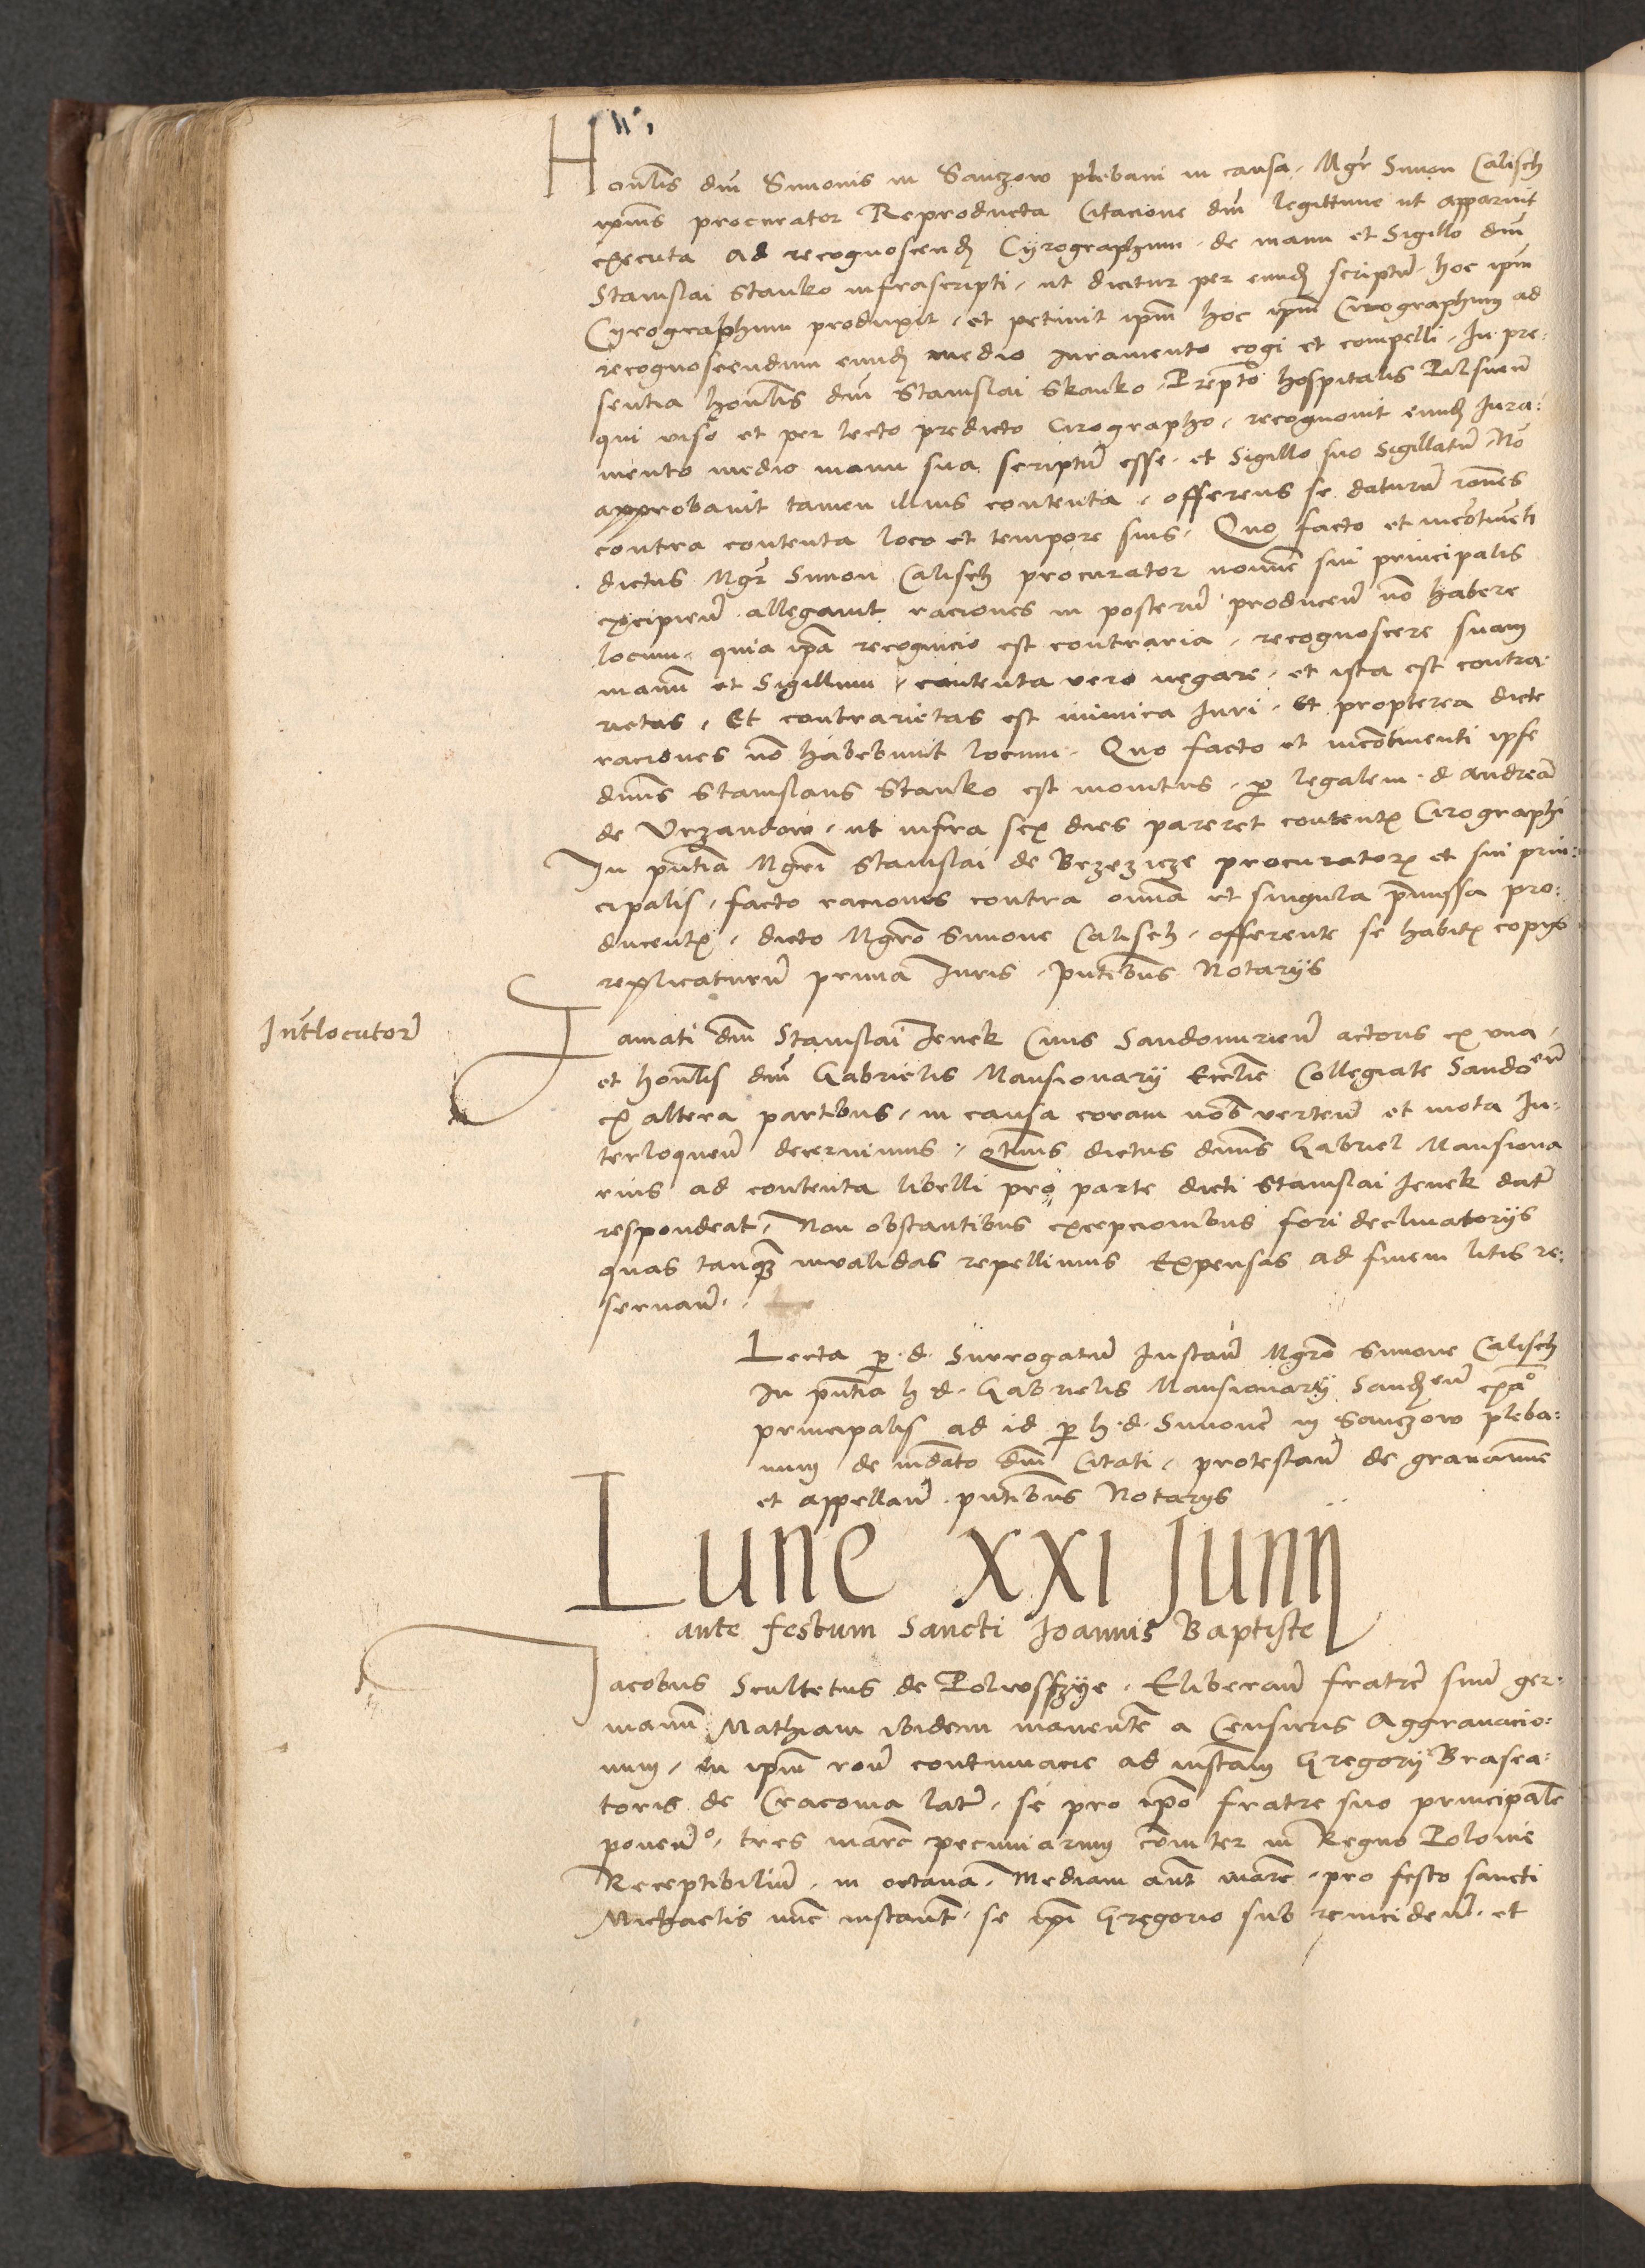 Honlis dni Simonis in Sanczow plebani in causa. Mgr Simon Calisch
ipius procurator Reproducta Citacione dni legittime ut apparuit
executa ad recognoscend Cyrographum de manu et Sigillo dni
Stanislai Stanko infrascripti, ut dicitur per eund scriptu hoc ipm
Cyrographum produxit, et petiuit ipm hoc ipm Cirographum ad
recognoscendum eund medio iuramento cogi et compelli. In pre:
sentia honlis dni Stanislai Skanko Prepto hospitalis Pilsnen
qui viso et per lecto predicto Cirographo, recognouit eund Iura:
mento medio manu sua scriptu esse et Sigillo suo Sigillatu No
approbauit tamen illius contenta, offerens se daturu rones
contra contenta loco et tempore suis. Quo facto et incotineti
dictus Mgr Simon Calisch procurator nomine sui principalis
excipien allegauit raciones in posteru producen no habere
locum, quia ipa recognicio est contraria, recognoscere suam
manu et Sigillum, contenta vero negare, et ista est contra:
rietas, Et contrarietas est inimica Iuri. Et propterea dicte
raciones no habebunt locum. Quo facto et incotinenti ipse
dnus Stanislaus Stanko est monitus, p legalem d Andrea
de Vrzandow, ut infra sex dies pareret contentx Cirographi
In pntia Mgri Stanislai de Brzezicze procuratorx et sui prin:
cipalis, facto raciones contra omia et singula pmissa pro:
ducentx, dicto Mgro Simone Calisch, offerente se habitx copys
replicaturu prima Iuris, pntibus Notarijs
Intlocutor
Famati dni Stanislai Jenek Ciuis Sandomirien actoris ex vna,
et honlis dni Gabrielis Mansionarij Ecclie Collegiate Sandoen
ex altera partibus, in causa coram nob verten et mota In:
terloquen decernimus, qtinus dictus dnus Gabriel Mansiona
rius ad contenta libelli pro parte dicti Stanislai Jenek dat
respondeat, Non obstantibus excepcionibus fori declinatorijs
quas tanq inualidas repellimus Expensas ad finem litis re:
seruan.
Lecta p d Surrogatu Instan Mgro Simone Calisch
In pntia h d Gabrielis Mansionarij Sanden exa
principalis ad id p h d Simone in Sanczow pleba:
num de mdato dni Citati, protestan de grauamine
et appellan pntibus Notarijs
Lune XXI Junij
ante festum Sancti Joannis Baptiste
Jacobus Scultetus de Polwsszye, Eliberan fratre suu ger:
manu Mathiam ibidem manente a Censuris Aggrauacio:
num, in ipm ron contumacie ad instam Gregorij Brasea:
toris de Cracouia lat, se pro ipo fratre suo principale
ponen, tres marc pecuniarum comiter in Regno Polonie
Receptibiliu, in octaua. Mediam aut marc pro festo sancti
Michaelis nuc instant, se ipi Gregorio sub reincident et